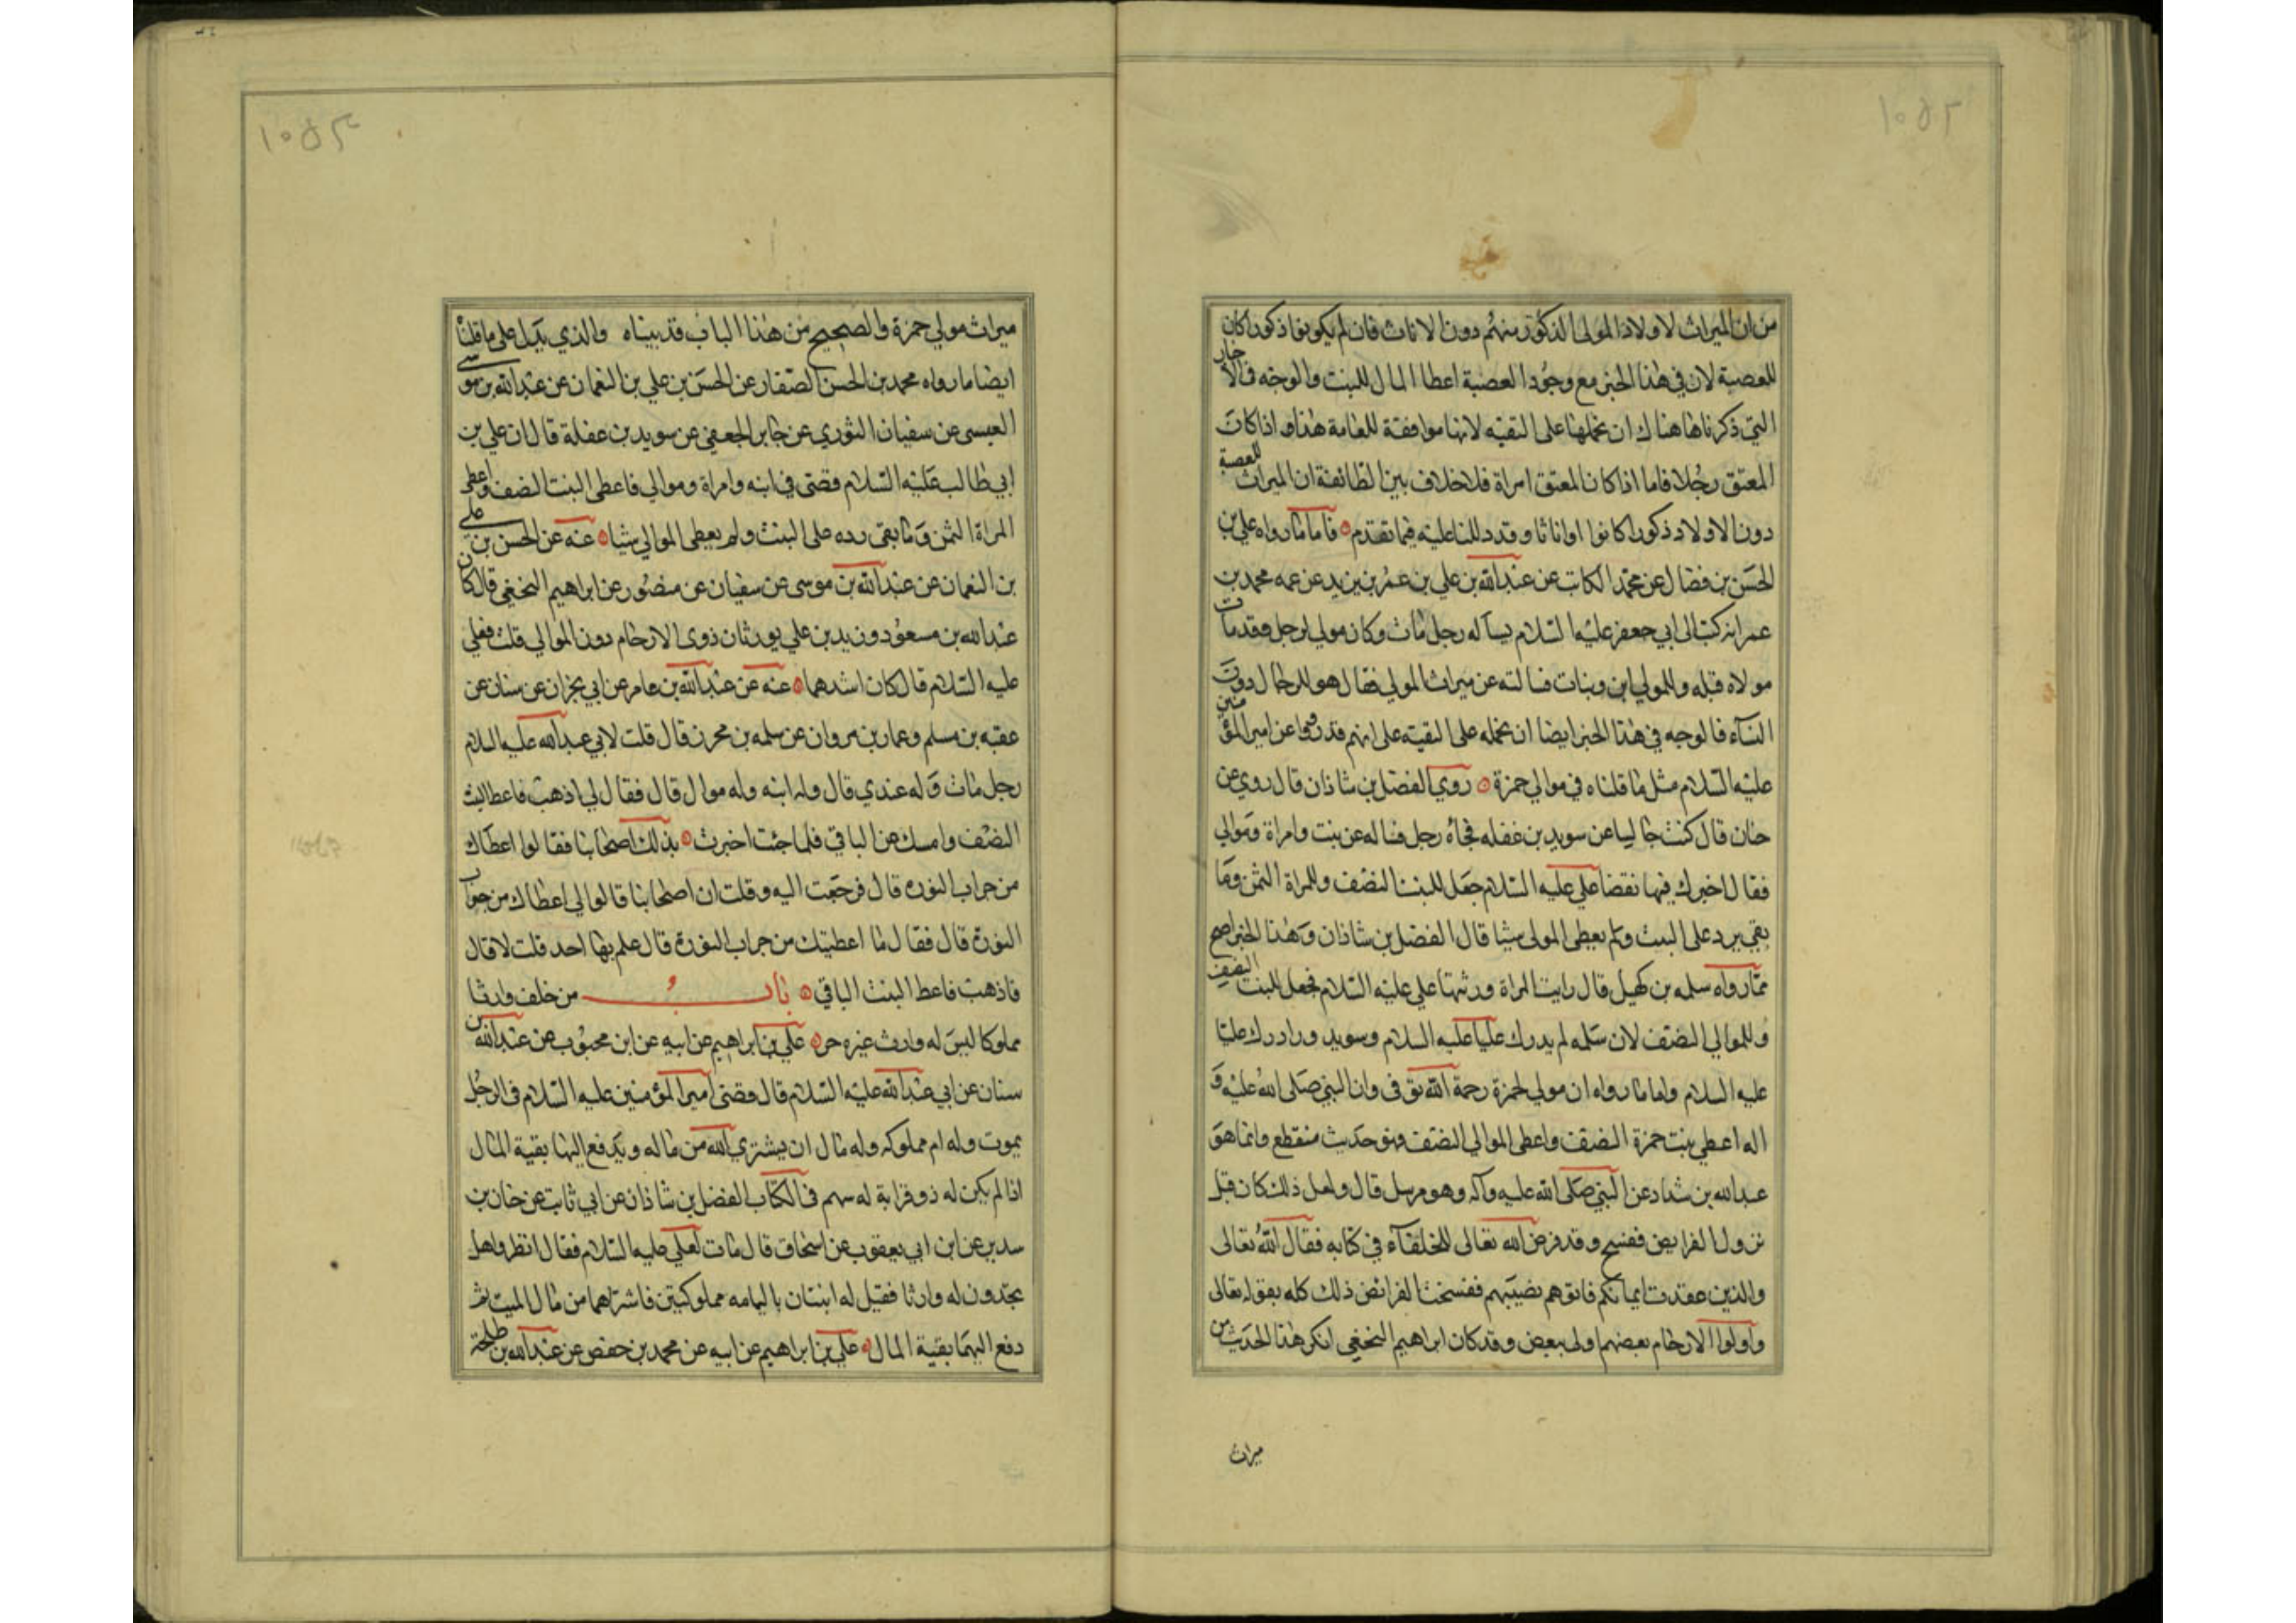 ١٠٥٢
من ان الميراث لاولاد المولى الذكور منهم دون الاناث فان لم يكونوا ذكورا كان
للعصبة لان في هذا الخبر مع وجود العصبة اعطا المال للبنت والوجه في الاخبار
التي ذكرناها هناك ان نحملها على التقيه لانها موافقة للعامة هذا اذا كان
المعتق رجلا فاما اذا كان المعتق امراة فلا خلاف بين الطائفة ان الميراث للعصبة
دون الاولاد ذكورا كانوا او اناثا وقد دللنا عليه فيما تقدم فاما ما رواه علي بن
الحسن بن فضال عن محمد الكاتب عن عبدالله بن علي بن عمر بن يزيد عن عمه محمد بن
عمر انه كتب الى ابي جعفر عليه السلام يساله رجل مات وكان مولى لرجل وقد مات
مولاه قبله وللمولى ابن وبنات فسالته عن ميراث المولى فقال هو للرجال دون
النسآء فالوجه في هذا الخبر ايضا ان نحمله على التقيه على انهم قد رووا عن امير المؤمنين
عليه السلام مثل ما قلناه في موالي حمزة روى الفضل بن شاذان قال روي عن
حنان قال كنت جالسا عن سويد بن غفله فجاه رجل فساله عن بنت وامراة وموالي
فقال اخبرك فيها بقضا علي عليه السلام جعل للبنت النصف وللمراة الثمن وما
بقي يرد على البنت ولم يعطى المولى شيئا قال الفضل بن شاذان وهذا الخبر اصح
مما رواه سلمه بن كهيل قال رايت المراة ورثتها علي عليه السلام فجعل للبنت النصف
وللموالي النصف لان سلمه لم يدرك عليا عليه السلام وسويد ادرك عليا
عليه السلام واما ما رواه ان مولى لحمزة رحمة الله توفى وان النبي صلى الله عليه و
اله اعطى بنت حمزة النصف واعطى الموالي النصف وهو حديث منقطع وانما هو
عبدالله بن شداد عن النبي صلى الله عليه وآله وهو مرسل قال ولعل ذلك كان قبل
نزول الفرايض ففسخ وقد فرض الله تعالى للحلفآء في كتابه فقال الله تعالى
والذين عقدت ايمانكم فاتوهم نصيبهم ففسخت الفرائض ذلك كله بقوله تعالى
واولوا الارحام بعضهم اولى ببعض وقد كان ابراهيم النخعي انكر هذا الحديث من
ميراث
١٠٥٣
ميراث مولى حمزة والصحيح من هذا الباب قد بيناه والذي يدل على ما قلنا
ايضا ما رواه محمد بن الحسن الصفار عن الحسن بن علي بن النعمان عن عبدالله بن موسى
العبسى عن سفيان الثوري عن جابر الجعفي عن سويد بن غفلة قال ان علي بن
ابي طالب عليه السلام قضى في ابنه وامراة وموالي فاعطى البنت النصف واعطى
المراة الثمن وما بقى رده على البنت ولم يعطى الموالي شيا عنه عن الحسن بن علي
بن النعمان عن عبدالله بن موسى عن سفيان عن منصور عن ابراهيم النخعي قال كان
عبدالله بن مسعود وزيد بن علي يورثان ذوى الارحام دون الموالي قلت فعلي
عليه السلام قال كان اشدهما عنه عن عبدالله بن عامر عن ابي نجران عن سنان عن
عقبه بن مسلم وعمار بن مروان عن سلمه بن محرز قال قلت لابي عبدالله عليه السلام
رجل مات وله عندي قال وله ابنه وله موال قال فقال لي اذهب فاعط البنت
النصف وامسك عن الباقي فلما جئت اخبرت بذلك اصحابنا فقالوا اعطاك
من جراب النوره قال فرجعت اليه وقلت ان اصحابنا قالوا لي اعطاك من جراب
النورة قال فقال ما اعطيتك من جراب النورة قال علم بها احد قلت لا قال
فاذهب فاعط البنت الباقي باب من خلف وارثا
مملوكا ليس له وارث غيره حر علي بن ابراهيم عن ابيه عن ابن محبوب عن عبدالله بن
سنان عن ابي عبدالله عليه السلام قال قضى امير المؤمنين عليه السلام في الرجل
يموت وله ام مملوكه وله مال ان يشتري امه من ماله ويدفع اليها بقية المال
اذا لم يكن له ذو قرابة له سهم في الكتاب الفضل بن شاذان عن ابي ثابت عن حنان بن
سدير عن ابن ابي يعقوب عن اسحاق قال مات لعلي عليه السلام فقال انظروا هل
تجدون له وارثا فقيل له ابنتان باليمامه مملوكتين فاشتراهما من مال الميت ثم
دفع اليهما بقية المال علي بن ابراهيم عن ابيه عن محمد بن حفص عن عبدالله بن طلحة